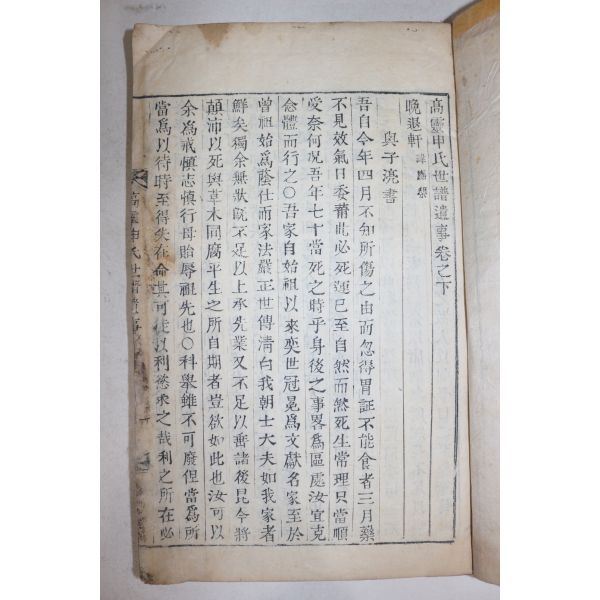 高靈申氏世譜遺事卷之下
晩退軒 諱應榘
與子湸書
吾自今年四月不知所傷之由而忽得胃証不能食者三月藥
不見效氣日委薾此必死運已至自然而然死生常理只當順
受奈何況吾年七十當死之時乎身後之事畧爲區處汝宜克
念體而行之○吾家自始祖以來奕世冠冕爲文獻名家至於
曾祖始爲蔭仕而家法嚴正世傳淸白我朝士大夫如我家者
鮮矣獨余無狀旣不足以上承先業又不足以垂諸後昆今將
顚沛以死與草木同腐平生之所自期者豈欲如此也汝可以
余爲戒愼志愼行毋貽辱祖先也○科擧雖不可廢但當爲所
當爲以待時至得失在命其可徒以利慾求之哉利之所在必
高靈申氏世譜遺事